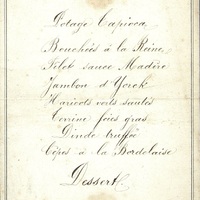 Potage Tapioca
Bouchées à la Reine
Filet sauce Madère
Jambon d'Yorck
Haricots verts sautés
Terrine foies gras
Dinde truffée
Cèpes à la Bordelaise
Dessert